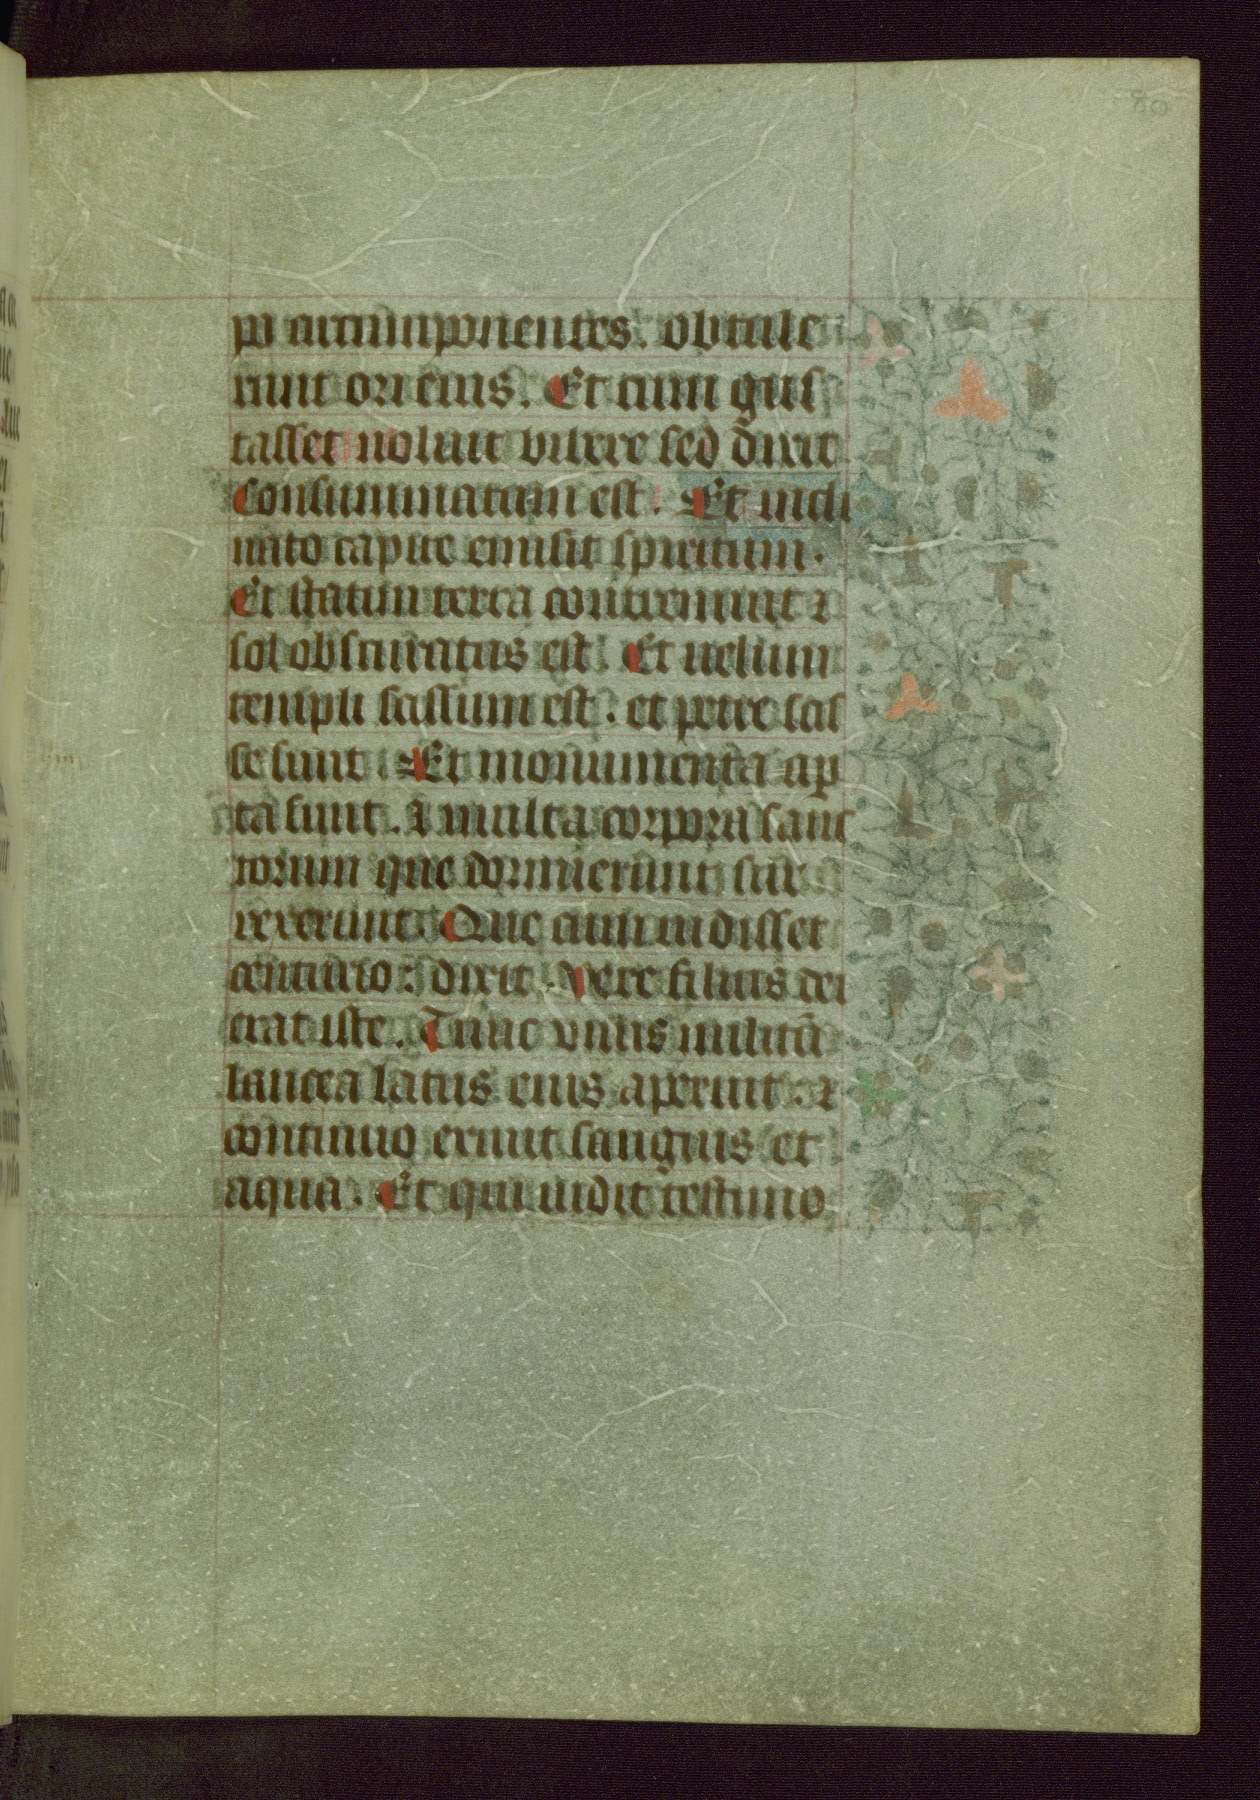 po circumponentes. obtule
runt ori eius. Et cum gus
tasset noluit bibere sed dixit
Consummatum est. Et incli
nato capite emisit spiritum.
Et statim terra contremuit ⁊
sol obscuratus est. Et uelum
templi scissum est. et petre scis
se sunt. Et monumenta ap
ta sunt. ⁊ multa corpora sanc
torum que dormierunt sur
rexerunt. Que cum uidisset
centurio: dixit. Vere filius dei
erat iste. Tunc vnus militū
lancea latus eius aperuit: ⁊
continuo exiuit sanguis et
aqua. Et qui uidit testimo